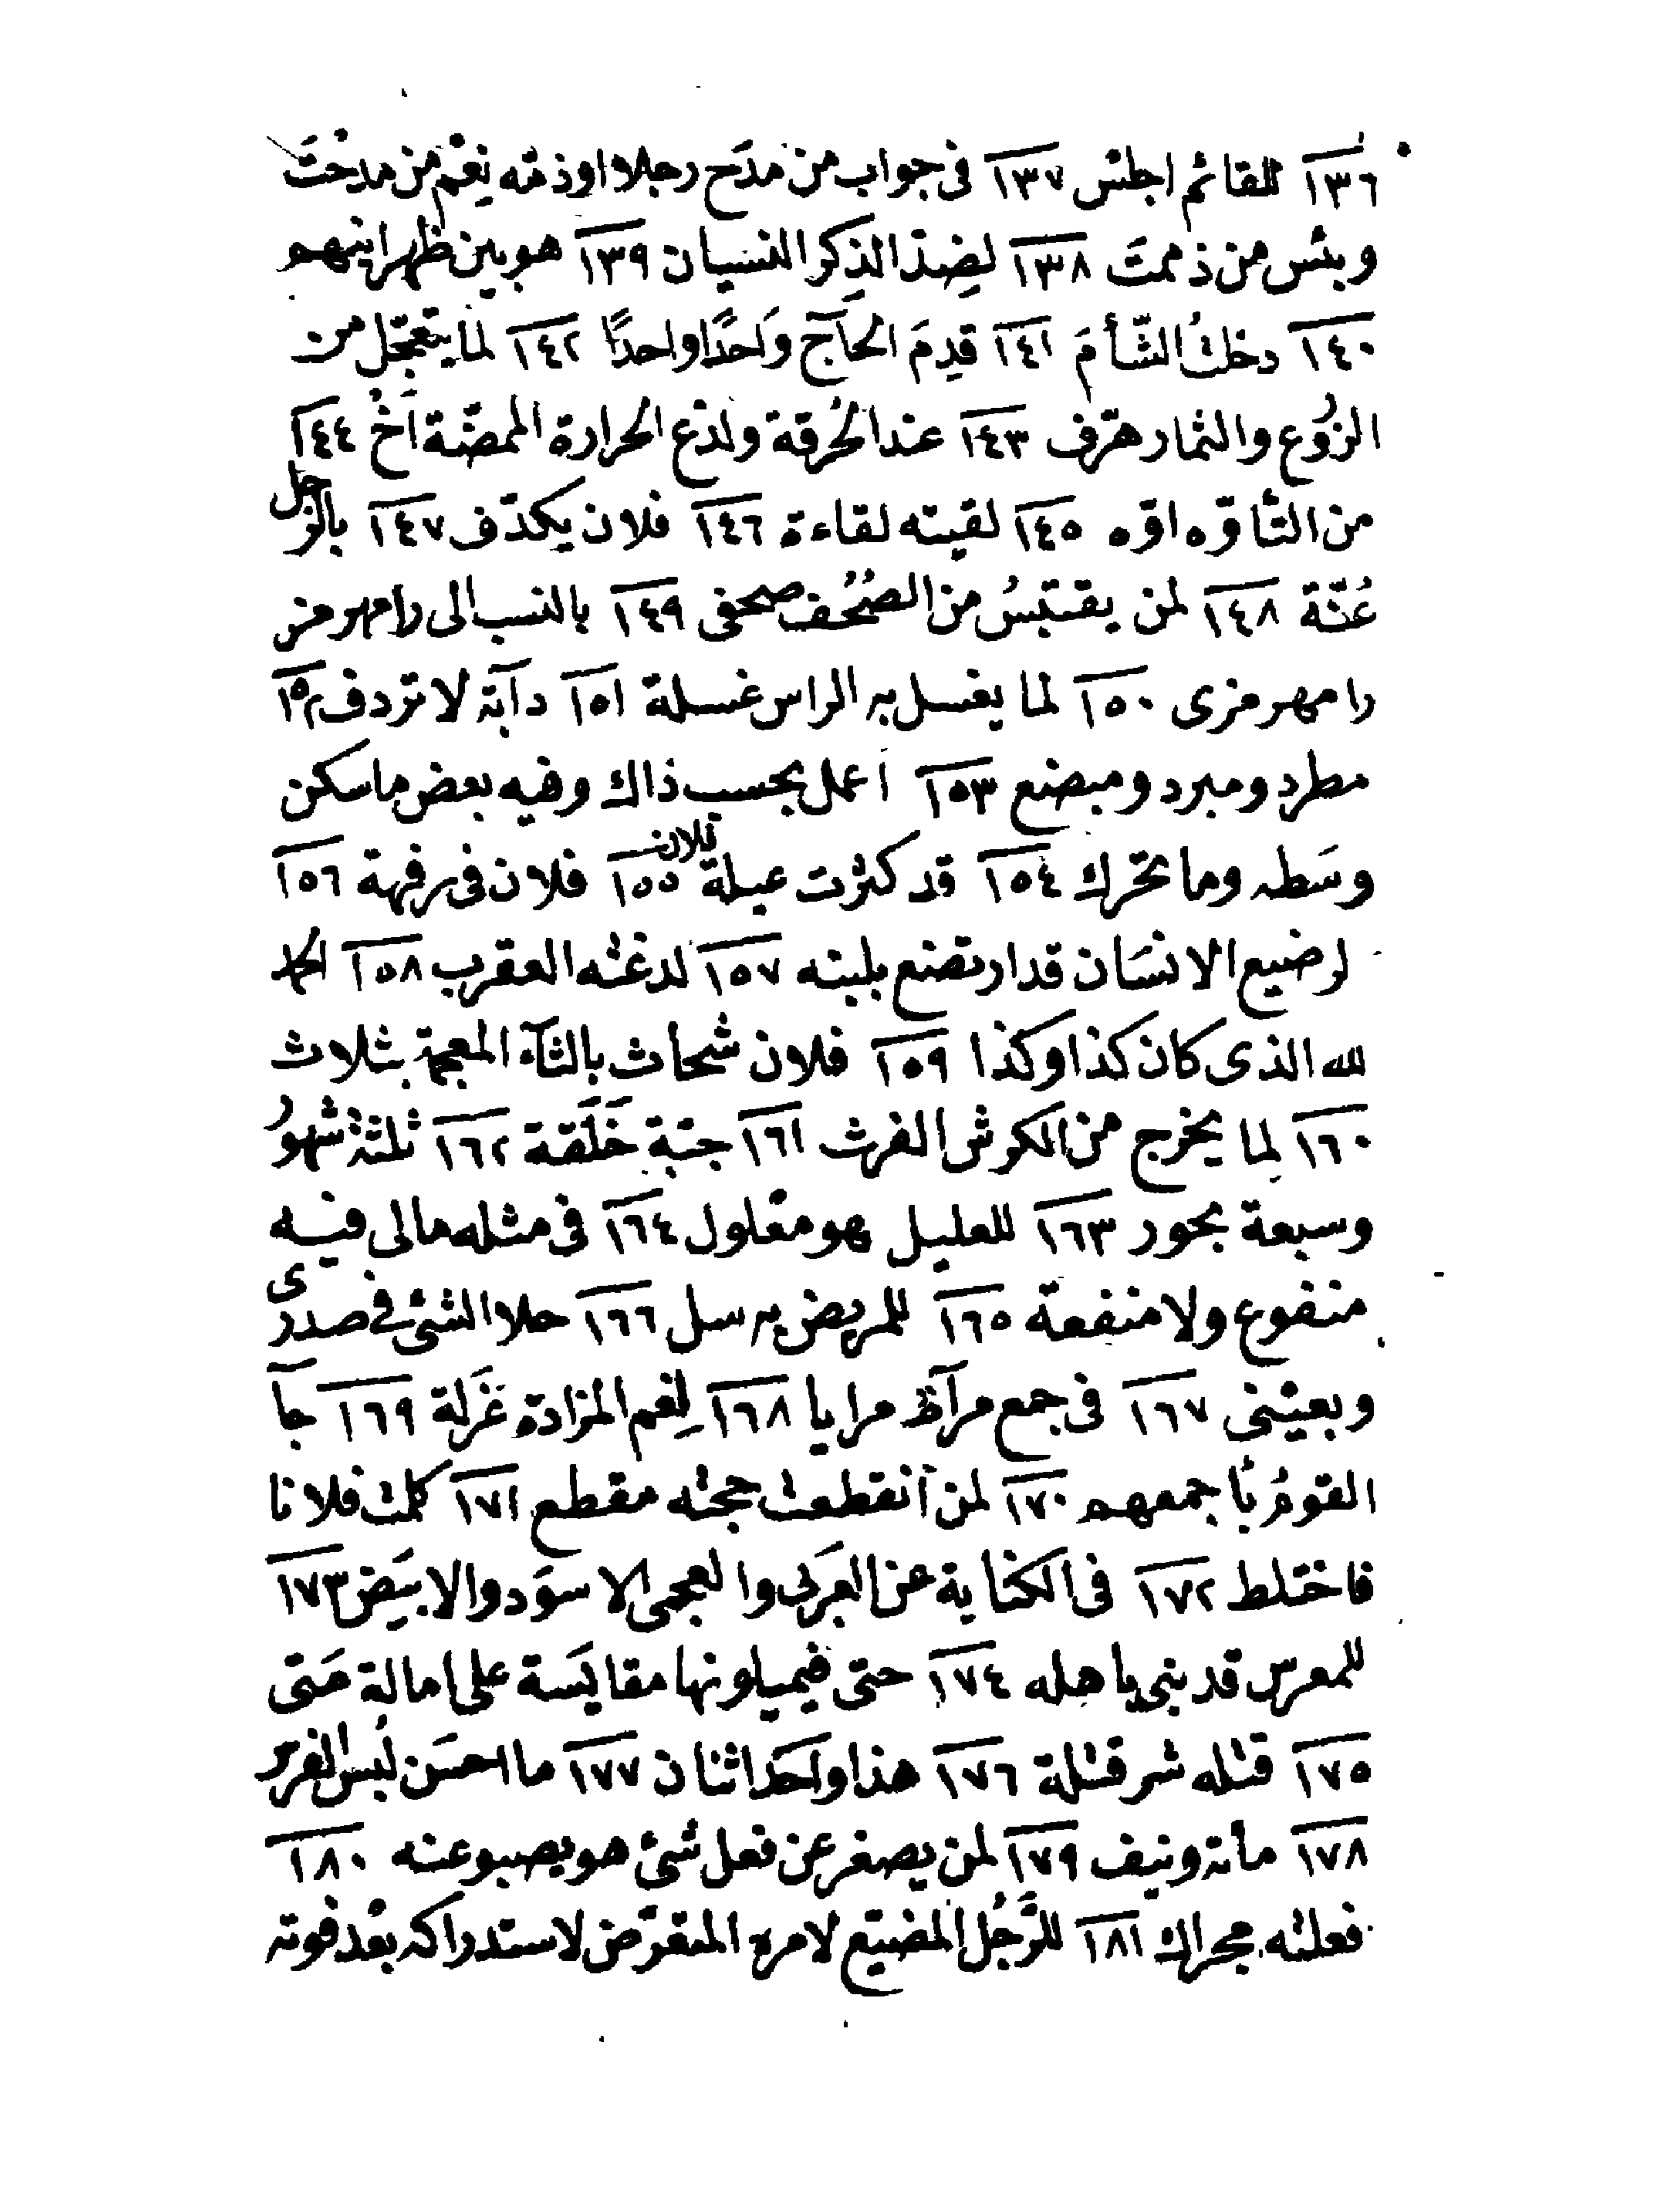 ١٣٦ للقائم اجلس ١٣٧ فى جواب من مدَح رجلا اوذمّه نِعْم من مدحْتَ
وبئس من ذممتَ ١٣٨ لضِدّ الذِكر النسيان ١٣٩ هو بين ظهرانيهم
١٤٠ دخلتُ الشّأمَ ١٤١ قدِمَ الحَآجّ واحدًا واحدًا ١٤٢ لما يتعجّل من
الزرُوع والثمار هرّف ١٤٣ عند الحُرقة ولذع الحرارة الممضّة اَخْ ١٤٤
من التأوّه اوّه ١٤٥ لقيته لقاءة ١٤٦ فلان يكدّف ١٤٧ بالرجل
عُنّة ١٤٨ لمن يقتبسُ من الصُحُف صحفى ١٤٩ بالنسب الى رامهرمز
رامهرمزى ١٥٠ لما يغسل به الراس غسلة ١٥١ دآبّة لا تردف ١٥٢
مطرد ومبرد ومبضع ١٥٣ اعمل بحسب ذاك وفيه بعض ما سكن
وسَطه وما تحرك ١٥٤ قد كثرت عيلة فلان ١٥٥ فلان فى رفهة ١٥٦
لرضيع الانسَان قد ارتضع بلبنه ١٥٧ لدغته العقرب ١٥٨ الحمد
لله الذى كان كذا وكذا ١٥٩ فلان شحاث بالثآء المعجمة بثلاث
١٦٠ لما يخرج من الكرش الفرث ١٦١ جبّة خَلَقة ١٦٢ ثلثة شهور
وسبعة بحور ١٦٣ للعليل هو معلول ١٦٤ فى مثله مالى فيه
منفوع ولا منفعة ١٦٥ للمريض به سل ١٦٦ حلا الشئ فى صدرى
وبعينى ١٦٧ فى جمع مرآة مرايا ١٦٨ لِفم المزادة عَزلة ١٦٩ جآ
القومُ باجمعهم ١٧٠ لمن انقطعت حجته مقطع ١٧١ كلمت فلانا
فاختلط ١٧٢ فى الكناية عن العَربى والعجمى الاسوَد والابيَض ١٧٣
للمعرس قد بنى باهله ١٧٤ حتى فيميلونها مقايَسة على امالة مَتى
١٧٥ قتله شر قتلة ١٧٦ هذا واحد اثنان ١٧٧ ما احسَن لُبس الفرس
١٧٨ مائة ونيف ١٧٩ لمن يصغر عن فعل شئ هو يصبو عنه ١٨٠
فعلته مجراك ١٨١ للرَّجُل المضيّع لامره المتعرّض لاستدراكه بعْد فوته